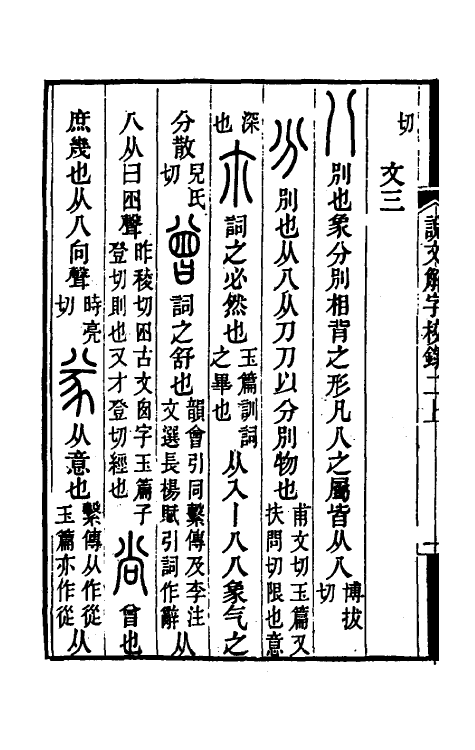 說文解字校錄二上 一
切
文三
八別也象分別相背之形凡八之屬皆从八博拔切
分別也从八从刀刀以分別物也甫文切玉篇又扶問切限也意
深也尒詞之必然也玉篇訓詞之畢也从入丨八八象气之
分散兒氏切曾詞之舒也韻會引同繫傳及李注文選長楊賦引詞作辭从
八从曰囪聲昨稜切囪古文囱字玉篇子登切則也又才登切經也尚曾也
庶幾也从八向聲時亮切㒸从意也繫傳从作從玉篇亦作從从